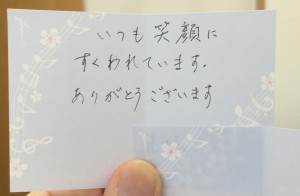 いつも笑顔に
すくわれています。
ありがとうございます